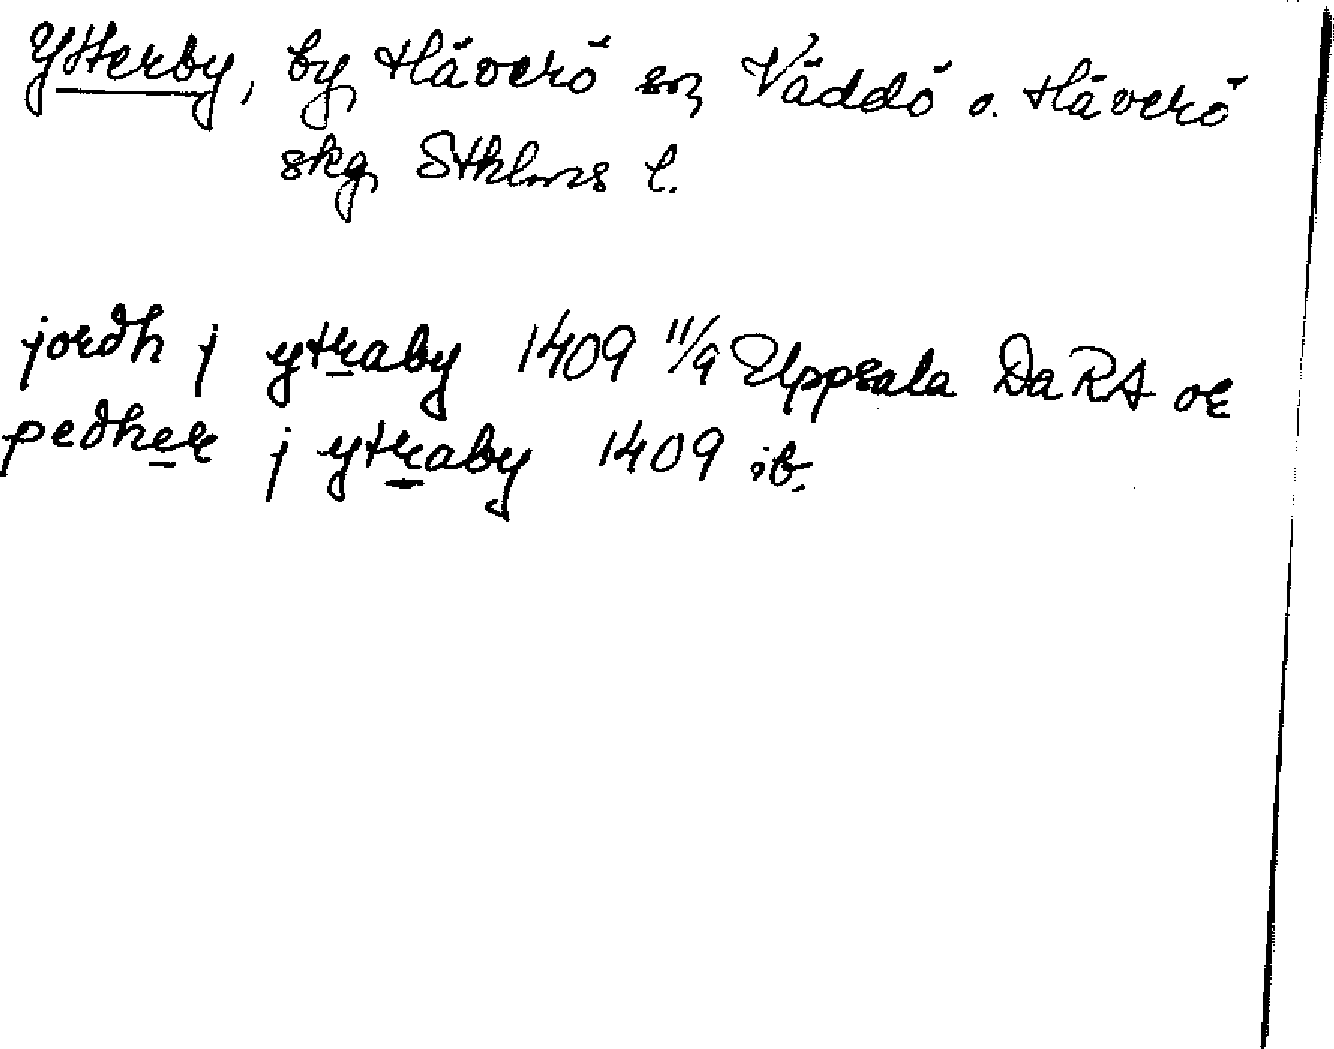 Ytterby, by, Häverö sn, Väddö o. Häverö
skg, Sthlms l.
jordh j ytraby 1409 11/9 Uppsala Da RA or
pedher j ytraby 1409 ib.